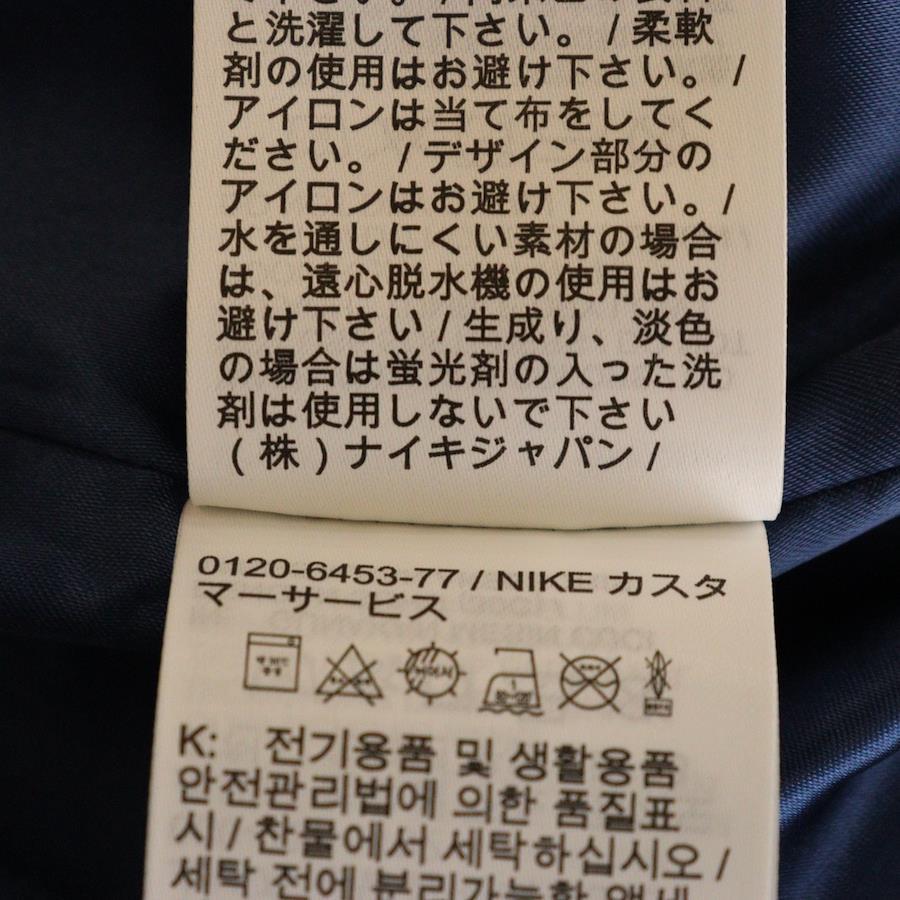 と洗濯して下さい。 / 柔軟
剤の使用はお避け下さい。 /
アイロンは当て布をしてく
ださい。 / デザイン部分の
アイロンはお避け下さい。 /
水を通しにくい素材の場合
は、遠心脱水機の使用はお
避け下さい / 生成り、淡色
の場合は蛍光剤の入った洗
剤は使用しないで下さい
(株) ナイキジャパン /
0120-6453-77 / NIKE カスタ
マーサービス
K: 전기용품 및 생활용품
안전관리법에 의한 품질표
시 / 찬물에서 세탁하십시오 /
세탁 전에 분리가능한 액세